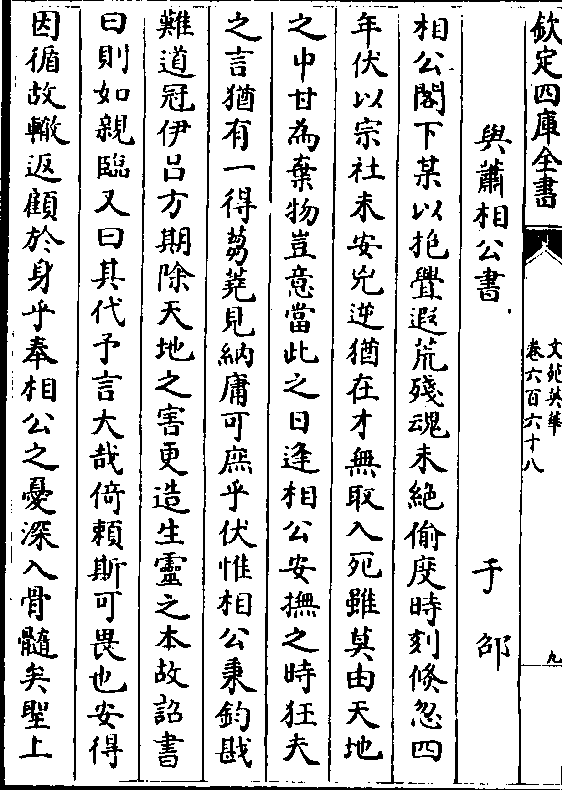 欽定四庫全書
文苑英華
卷六百六十八
九
與蕭相公書
于邵
相公閤下某以抱舋遐荒殘魂未絶偷度時刻倐忽四
年伏以宗社未安兇逆猶在才無取入死雖莫由天地
之中甘為棄物豈意當此之日逢相公安撫之時狂夫
之言猶有一得芻蕘見納庸可庶乎伏惟相公秉鈞戡
難道冠伊吕方期除天地之害更造生靈之本故詔書
曰則如親臨又曰其代予言大哉倚頼斯可畏也安得
因循故轍返顧於身乎奉相公之憂深入骨髓矣聖上